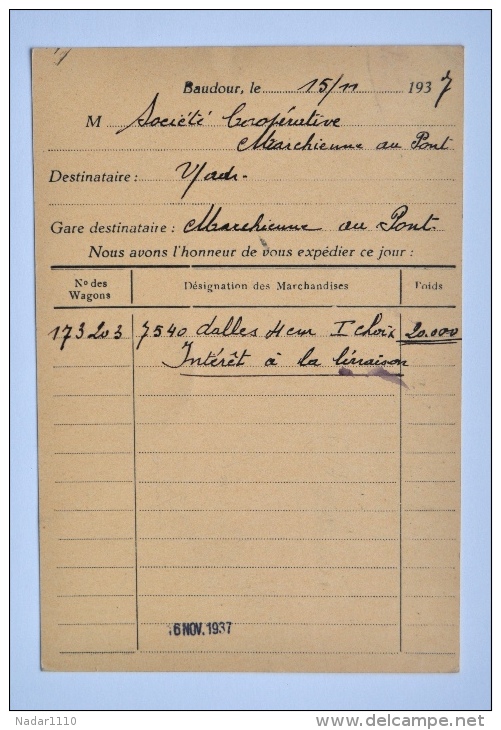 Baudour, le 15/11 1937
M Société Coopérative
Marchienne au Pont
Destinataire :
Gare destinataire : Marchienne au Pont
Nous avons l'honneur de vous expédier ce jour :
Nos des Wagons Désignation des Marchandises Poids
173203 7540 dalles 4 cm I choix 20.000
Intérêt à la livraison
16 NOV. 1937
Nadar1110
http://www.delcampe.net